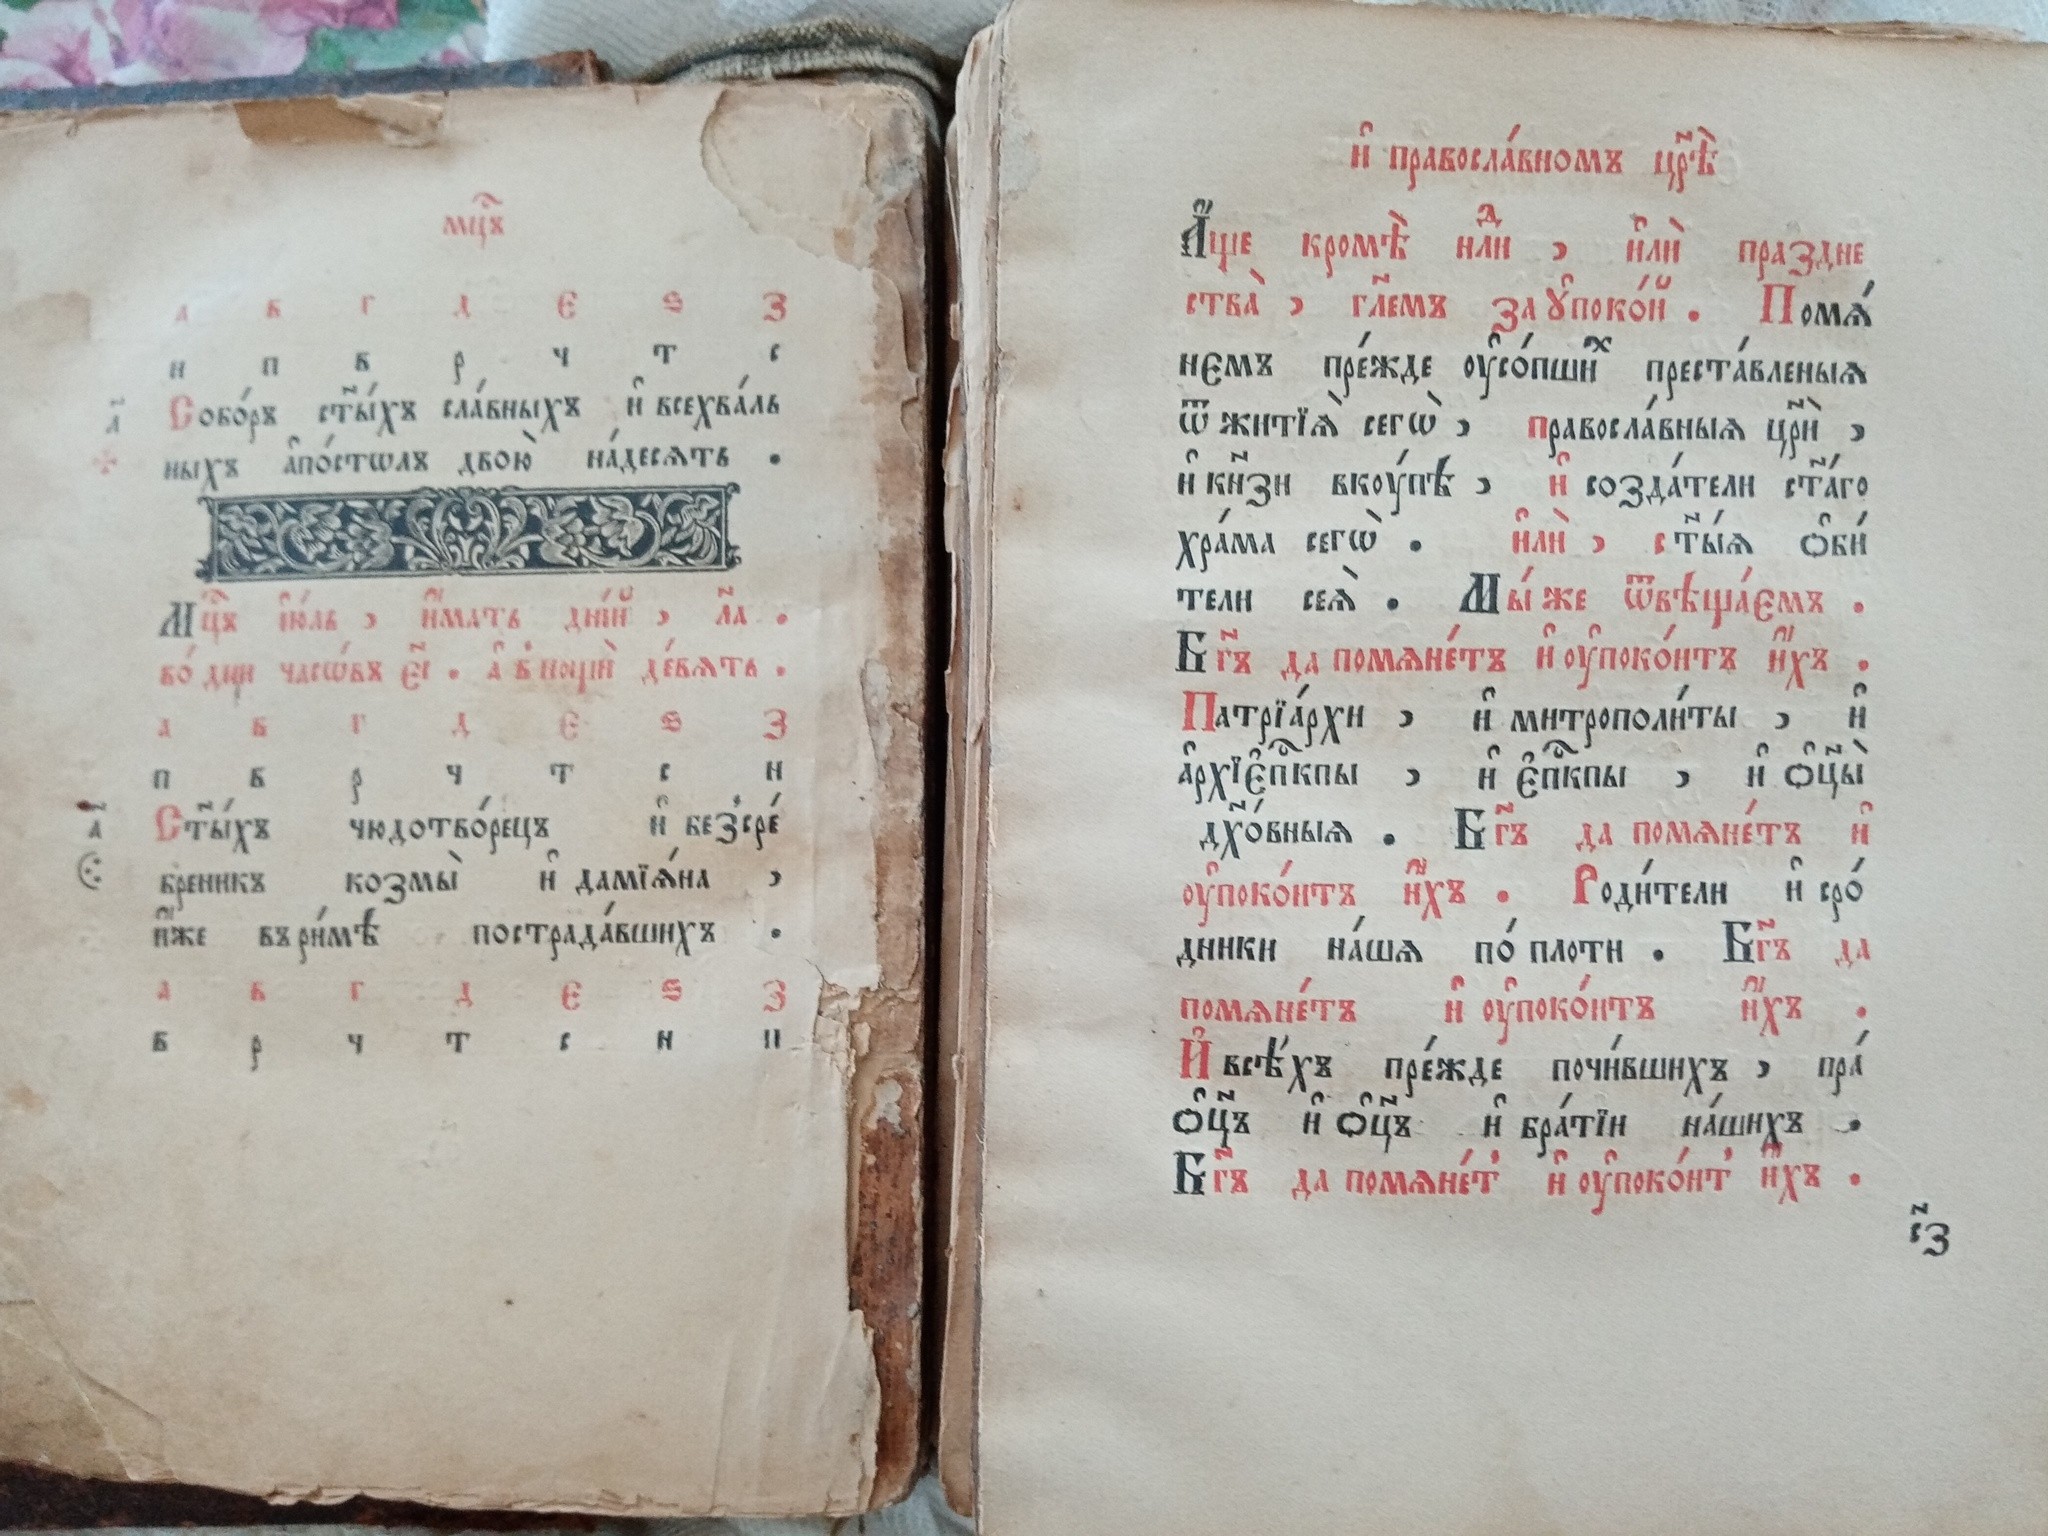 мц҃ъ
а в г д є ѕ з
н п в р ч т с
а҃ Собо́ръ ст҃ы́хъ сла́вныхъ и҆ всехва́ль
ныхъ а҆по́стѡлъ двою̀ на́десѧть .
Мц҃ъ і҆ю́ль , и҆́мать дні́й , л҃а .
во́ дни часѡ́въ є҃і . а҆ в нощѝ де́вѧть .
а в г д є ѕ з
п в р ч т с н
а҃ Ст҃ы́хъ чюдотво́рецъ и҆ безсре́
бреникъ козмы̀ и҆ дамїѧ́на ,
и҆́же въ ри́мѣ пострада́вшихъ .
а в г д є ѕ з
в р ч т с н п
и҆ правосла́вномъ цр҃ѣ̀
А҆́ще кромѣ̀ нд҃ли , и҆лѝ праздне
ства̀ , гл҃емъ за ᲂу҆поко́й . Помѧ́
немъ пре́жде ᲂу҆со́пшиⷯ преста́вленыѧ
ѿ житїѧ̀ сегѡ̀ , правосла́вныѧ цр҃ѝ ,
и҆ кн҃зи вкꙋ́пѣ , и҆ созда́тели ст҃а́го
хра́ма сегѡ̀ . и҆лѝ , ст҃ы́ѧ ѻ҆би́
тели сеѧ̀ . Мы́ же ѿвѣща́емъ .
Бг҃ъ да помѧне́тъ и҆ ᲂу҆поко́итъ и҆́хъ .
Патрїа́рхи , и҆ митрополи́ты , и҆
а҆рхїє҆пⷭ҇кпы , и҆ є҆пⷭ҇кпы , и҆ ѻ҆ц҃ы̀
дх҃о́вныѧ . Бг҃ъ да помѧне́тъ и҆
ᲂу҆поко́итъ и҆́хъ . Роди́тели и҆ сро́
дники на́шѧ по́ плоти . Бг҃ъ да
помѧне́тъ и҆ ᲂу҆поко́итъ и҆́хъ .
И҆ всѣ́хъ пре́жде почи́вшихъ , пра́
ѻ҆ц҃ъ и҆ ѻ҆ц҃ъ и҆ бра́тїи на́шихъ .
Бг҃ъ да помѧне́т̾ и҆ ᲂу҆поко́ит̾ и҆́хъ .
с҃з